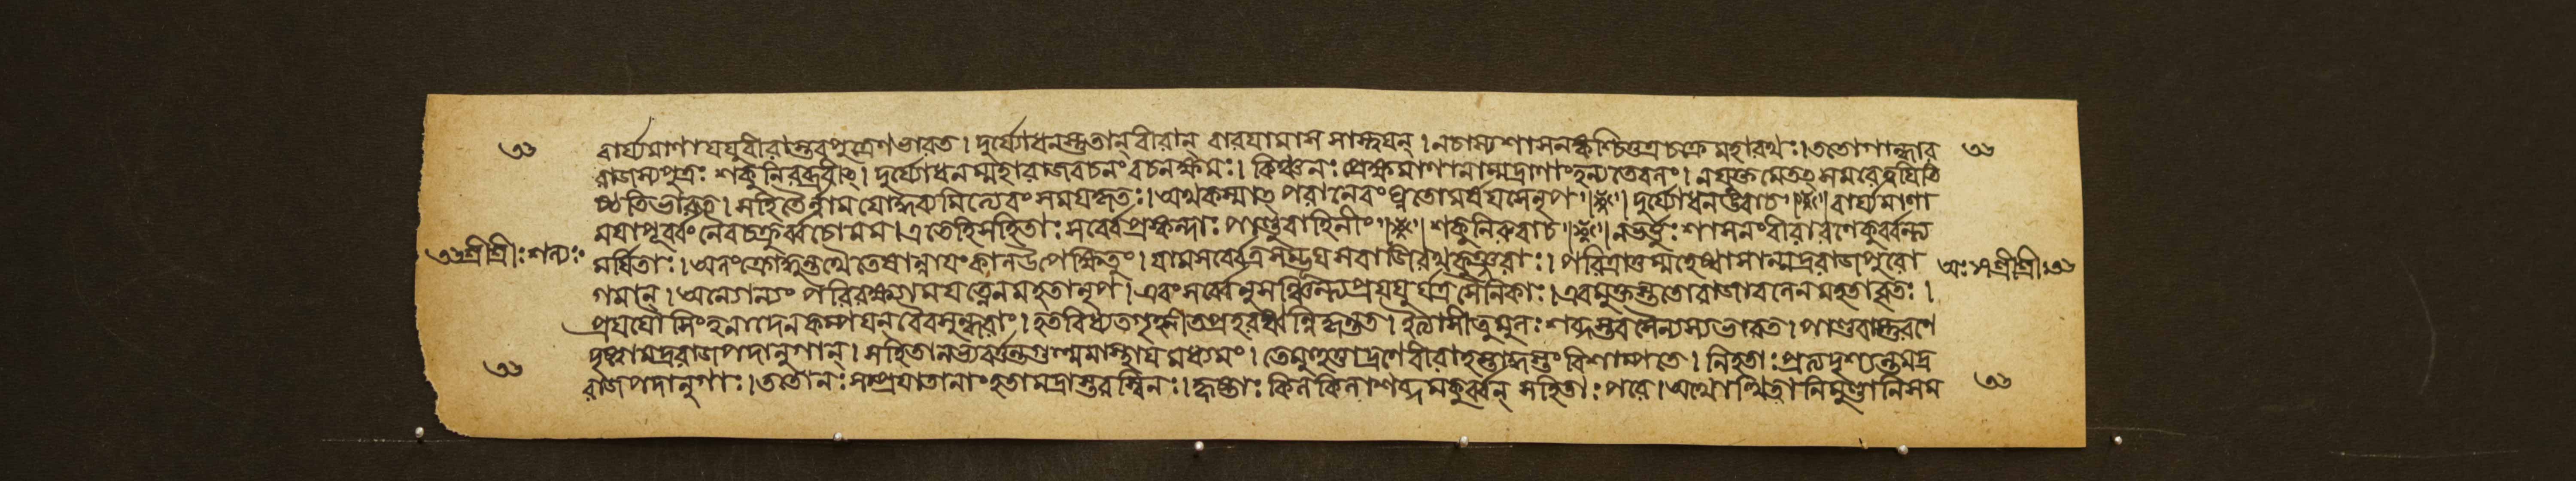 বার্য্যমাণা যযুর্বীরাস্তব পুত্রেণ ভারত। দুর্য্যোধনস্তু তান্ বীরান্ বারয়ামাস সান্ত্বয়ন্। ন চাস্য শাসনঙ্কশ্চিত্তত্র চক্রে মহারথঃ। ততো গান্ধার
রাজস্য পুত্রঃ শকুনিরব্রবীৎ। দুর্য্যোধনম্মহারাজ বচনং বচনক্ষমঃ। কিঞ্চ নঃ প্রেক্ষমাণানাম্মদ্রাণাং হন্যতে বলং। ন যুক্তমেতৎ সমরে ত্বয়ি তি
ষ্ঠতি ভারত। সহিতৈর্নাম যোদ্ধব্যমিত্যেবং সময়ঃ কৃতঃ। অথ কস্মাৎ পরানেবং ঘ্নতো মর্ষয়সে নৃপ॥ দুর্য্যোধন উবাচ॥ বার্য্যমাণা
ময়া পূর্ব্বং নৈব চক্রুর্ব্বচো মম। এতে হি সহিতাঃ সর্ব্বে প্রস্কন্দাঃ পাণ্ডুবাহিনীং॥ শকুনিরুবাচ॥ ন ভর্ত্তুঃ শাসনং বীরা রণে কুর্ব্বন্ত্য
মর্ষিতাঃ। অলং ক্রোদ্ধুন্তথৈতেষান্নায়ং কাল উপেক্ষিতুং। যামঃ সর্ব্বেত্র সম্ভূয় সবাজিরথকুঞ্জরাঃ। পরিত্রাতুম্মহেষ্বাসান্মদ্ররাজপুরো
গমান্। অন্যেন্যং পরিরক্ষামো যত্নেন মহতা নৃপ। এবং সর্ব্বেনুসঞ্চিন্ত্য প্রযযুর্যত্র সৈনিকাঃ। এবমুক্তস্ততো রাজা বলেন মহতা বৃতঃ।
প্রযযৌ সিংহনাদেন কম্পয়ন্ বৈ বসুন্ধরাং। হত বিধ্যত গৃহ্ণীত প্রহরধ্বন্নিকৃন্তত। ইত্যাসীত্তুমুলঃ শব্দস্তব সৈন্যস্য ভারত। পাণ্ডবাস্তু রণে
দৃষ্ট্বা মদ্ররাজপদানুগান্। সহিতানভ্যবর্ত্তন্ত গুল্মমাস্থায় মধ্যমং। তে মুহূর্ত্তাদ্রণে বীরা হস্তাহস্তং বিশাম্পতে। নিহতাঃ প্রত্যদৃশ্যন্ত মদ্র
রাজপদানুগাঃ। ততো নঃ সম্প্রযাতানাং হতা মদ্রাস্তরস্বিনঃ। হৃষ্টাঃ কিলকিলাশব্দমকুর্ব্বন্ সহিতাঃ পরে। অথোত্থিতানি মুণ্ডানি সম
শ্রীশ্রীঃ শল্যঃ
শ্রীশ্রীঃ